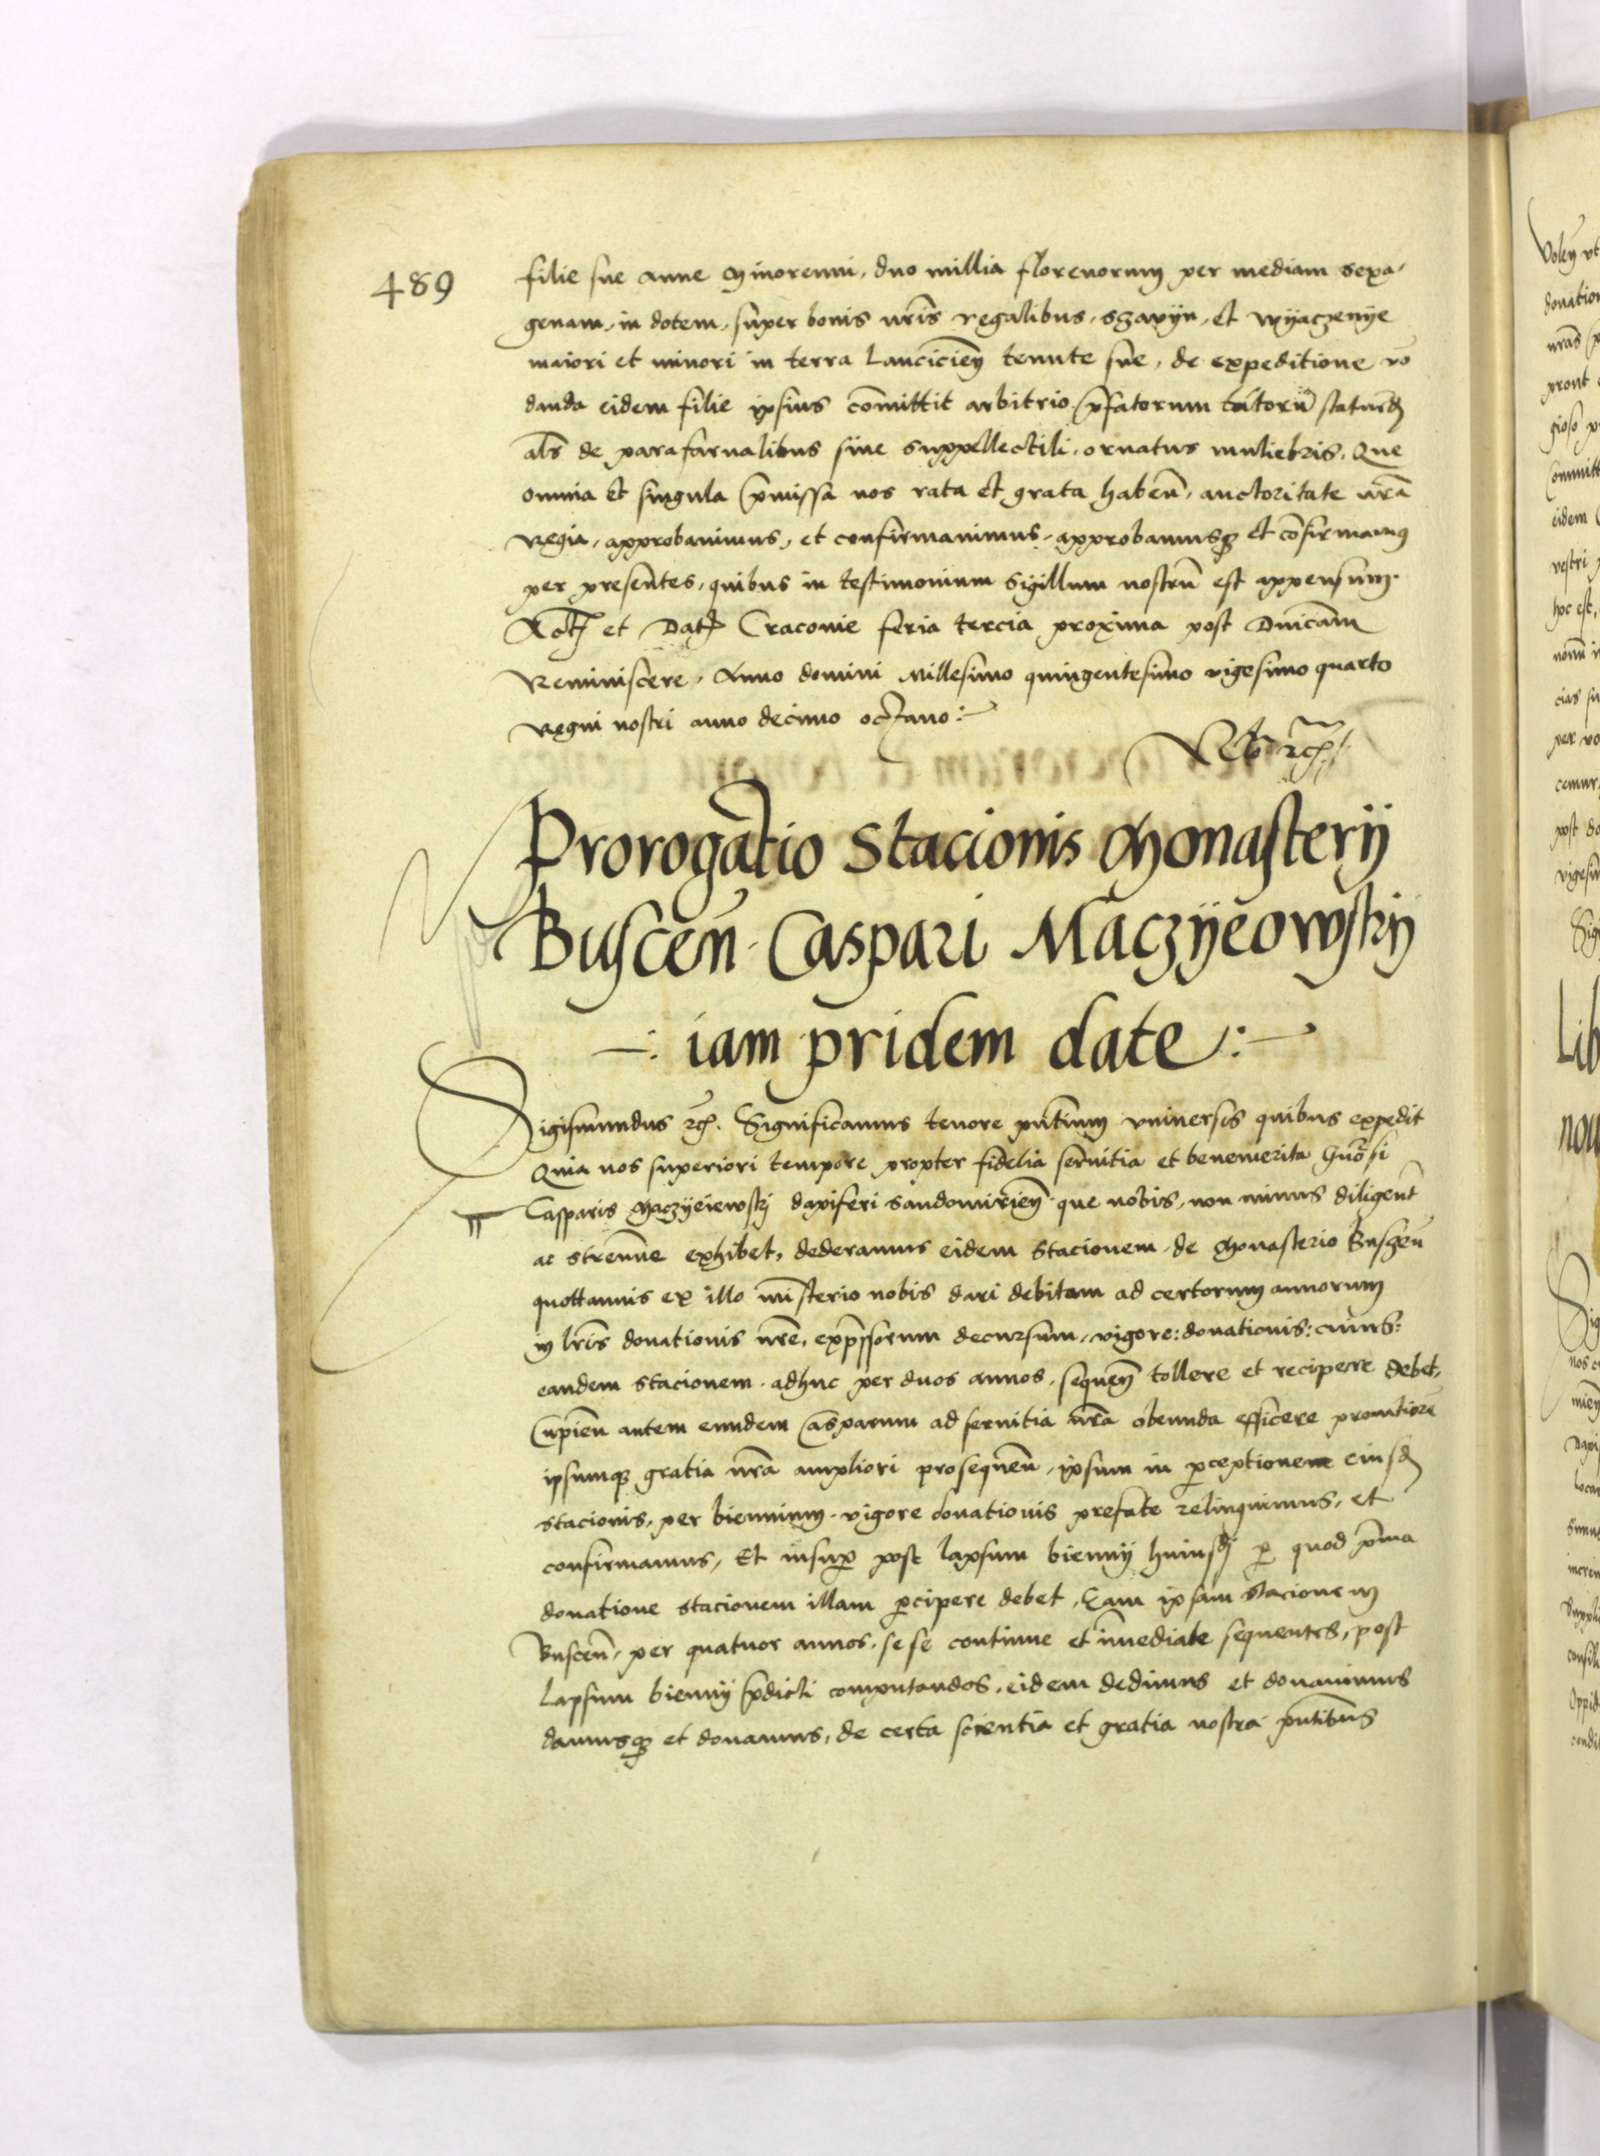 489
filie sue Anne Minorenni, duo millia florenorum per mediam sexa-
genam, in dotem, super bonis nris regalibus, et
maiori et minori in terra Lancicien tenute sue, de expeditione vo
danda eidem filie ipsius comittit arbitrio pfatorum tutoru
als de parafarnalibus siue suppellectili, ornatus muliebris, Que
omnia et singula pmissa nos rata et grata haben, auctoritate nra
Regia, approbauimus, et confirmauimus, approbamusq et cofirmamus
per presentes, quibus in testimonium Sigillum nostru est appensum.
Act et Dat Cracouie feria tercia proxima post Dnicam
Reminiscere, Anno domini Millesimo quingentesimo vigesimo quarto
Regni nostri anno decimo octauo :-
Prorogatio Stacionis Monasterij
Buscen. Caspari Maczyeowskij
-: iam pridem date :-
Sigismundus Significamus tenore pntium vniuersis quibus expedit
Quia nos superiori tempore propter fidelia seruitia et benemerita Gnosi
Casparis Maczyeiewskj dapiferi Sandomirien. que nobis, non minus diligent
ac strenue exhibet, dederamus eidem Stacionem de Monasterio Buscen
quottannis ex illo mnsterio nobis dari debitam ad certorum annorum
in lris donationis nre, exprssorum decursum, vigore: donationis: cuius:
eandem stacionem. adhuc per duos annos, sequen tollere et recipere debet,
Cupien autem eundem Casparum ad seruitia nra obeunda efficere promtiore
ipsumq gratia nra ampliori prosequen, ipsum in pceptionem eiusd
stacionis, per biennium. vigore donationis prefate relinquimus, et
confirmamus, Et insup post lapsum biennij huiusd p quod pma
donatione stacionem illam pcipere debet, Eam ipsam stacionem
Buscen, per quatuor annos, se se continue et imediate sequentes, post
lapsum biennij pdicti computandos, eidem dedimus et donauimus
damusq et donamus, de certa scientia et gratia nostra pntibus